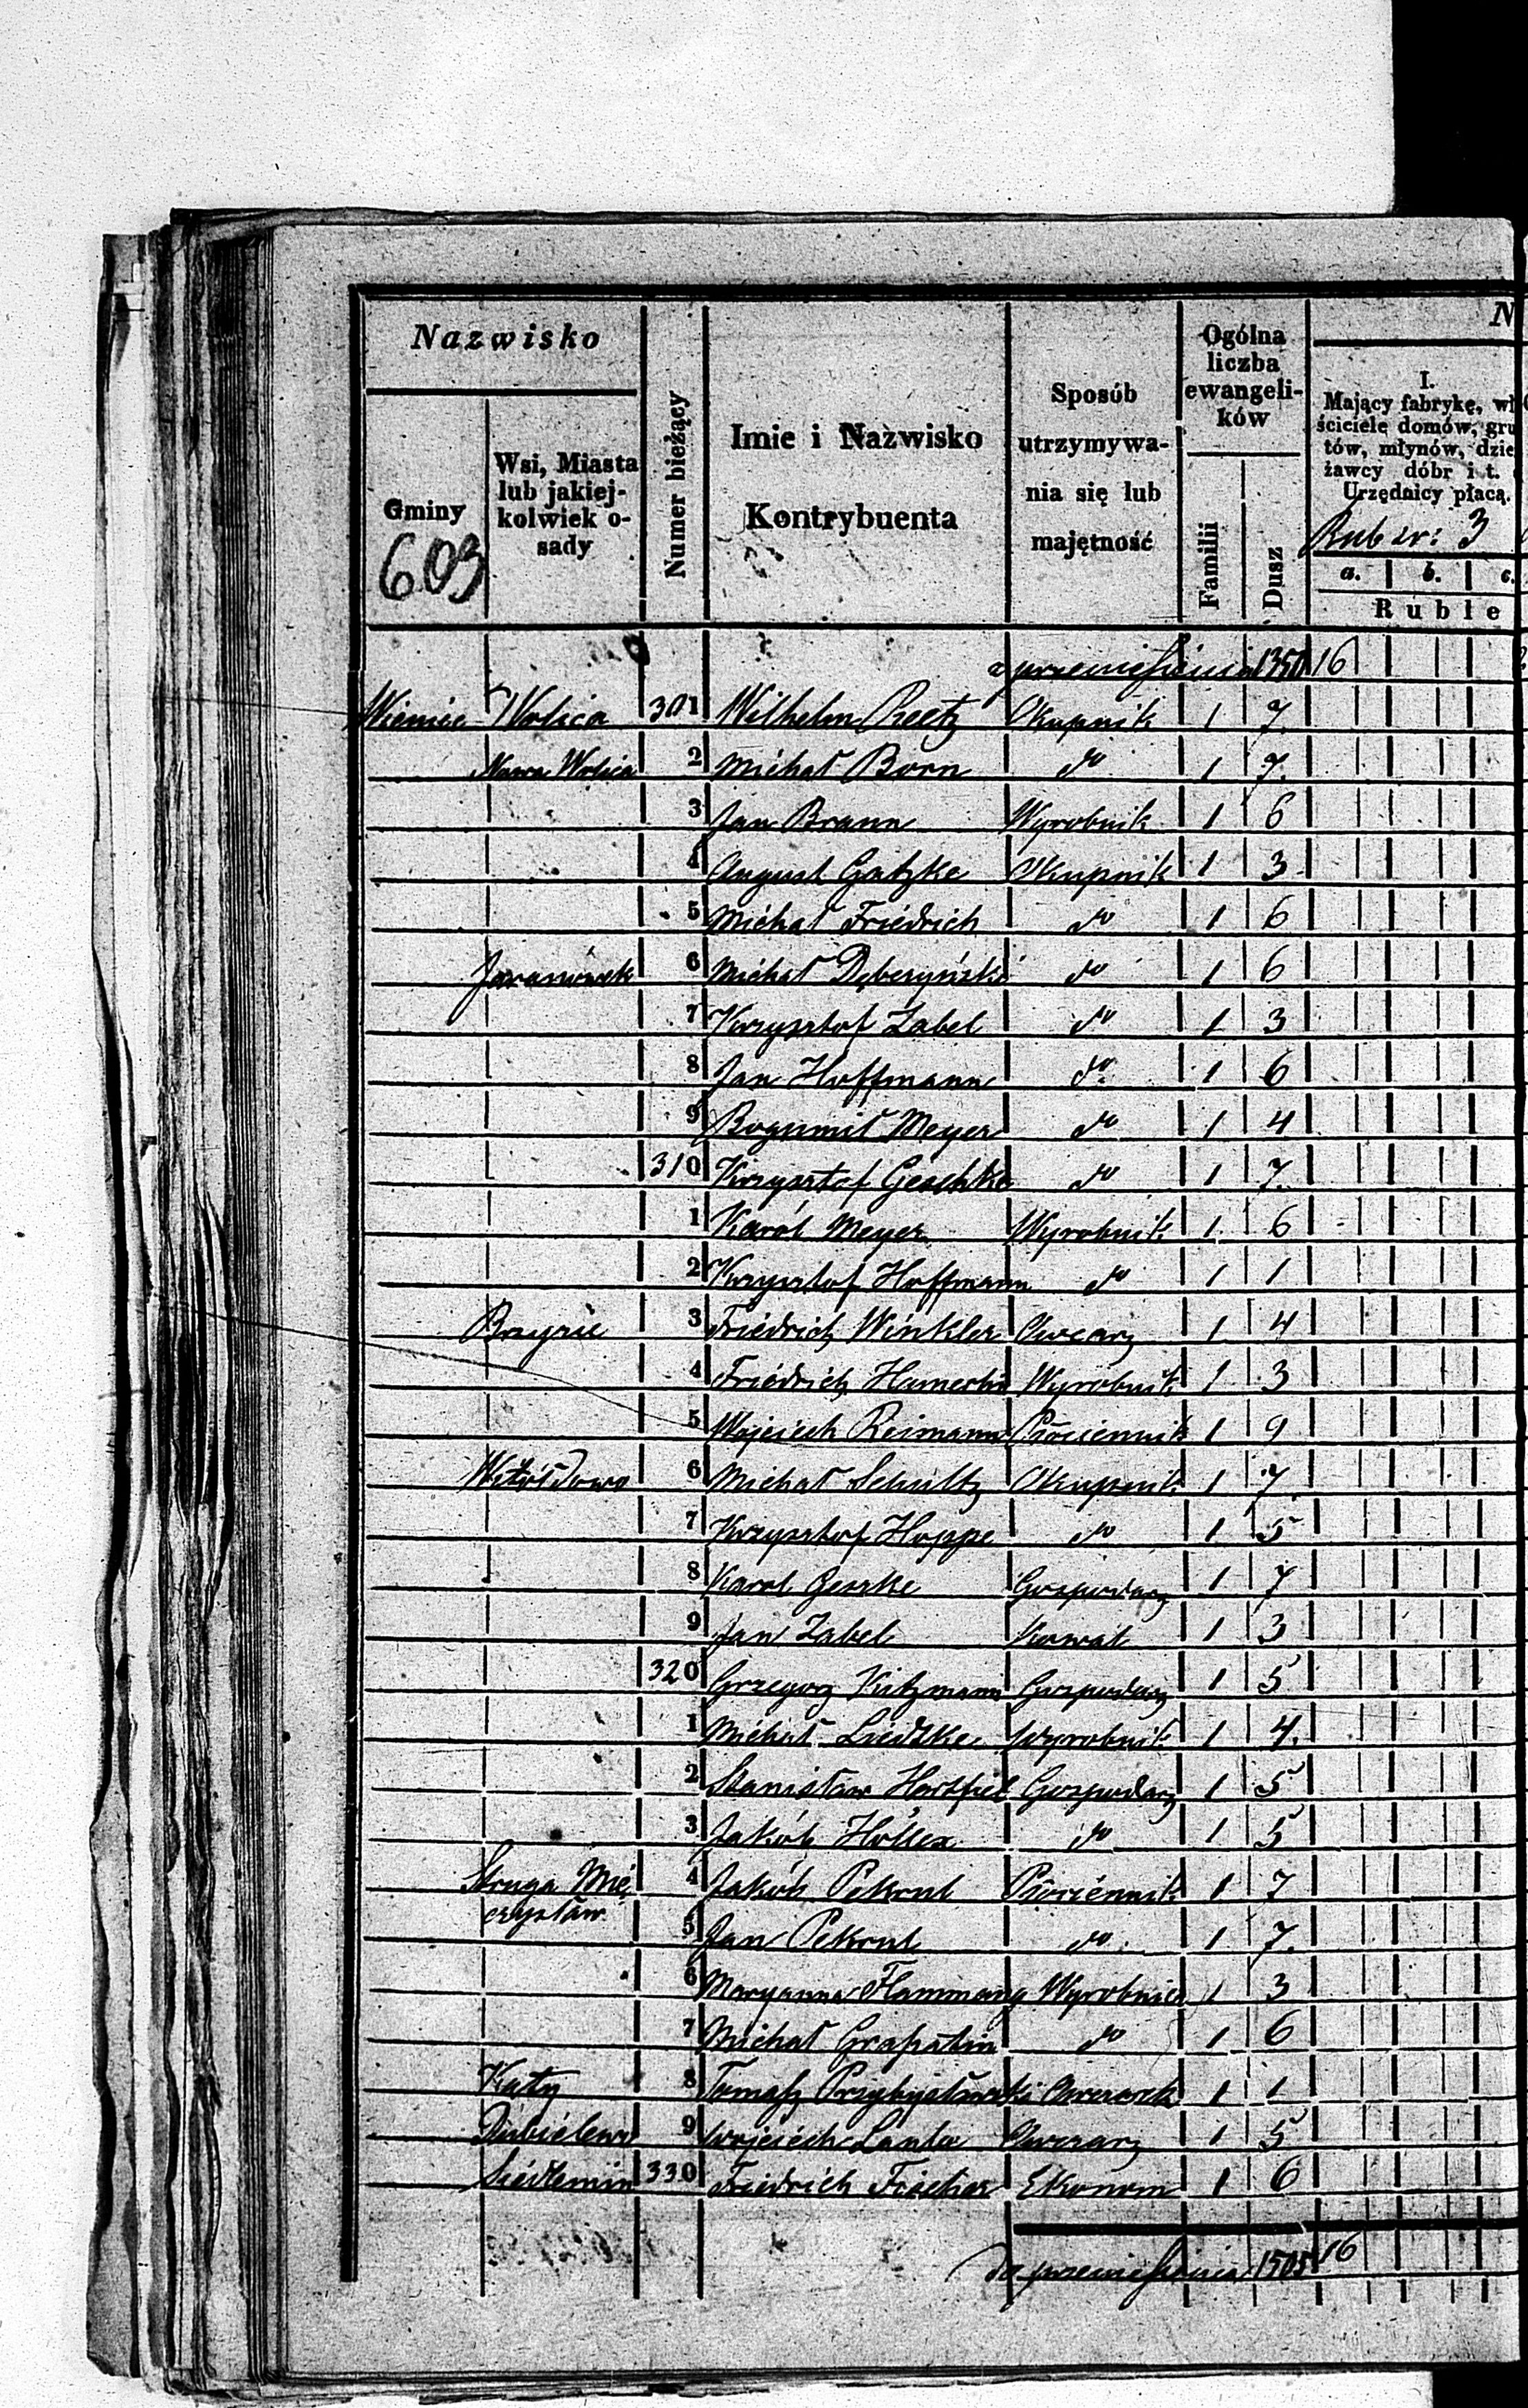 Nazwisko
Gminy
603
Wsi, Miasta
lub jakiej-
kolwiek o-
sady
Numer bieżący
Imie i Nazwisko
Kontrybuenta
Sposób
utrzymywa-
nia się lub
majętność
Ogólna
liczba
ewangeli-
ków
Familii
Dusz
N
I.
Mający fabrykę, wł
ściciele domów, gru
tów, młynów, dzie
żawcy dóbr i t.
Urzędnicy płacą.
Rub sr: 3
a. b. c.
Ruble
z przeniesienia 1350 16
Wieniec Wolica 301 Wilhelm Reetz Okupnik 1 7.
Nowa Wolica 2 Michał Born do 1 7.
3 Jan Braun Wyrobnik 1 6
4 August Gatzke Okupnik 1 3
5 Michał Friedrich do 1 6
Jaranówek 6 Michał Dębczyński do 1 6
7 Krzysztof Zabel do 1 3
8 Jan Hoffmann do 1 6
9 Bogumił Meyer do 1 4
310 Krzysztof Geschke do 1 7.
1 Karól Meyer Wyrobnik 1 6
2 Krzysztof Hoffmann do 1 1
Brzyzie 3 Friedrich Winkler Owczarz 1 4
4 Friedrich Wyrobnik 1 3
5 Wojciech Reimann Płóciennik 1 9
Witoldowo 6 Michał Schultz Okupnik 1 7
7 Krzysztof Hoppe do 1 5
8 Karol Geszke Gospodarz 1 7
9 Jan Zabel Kowal 1 3
320 Grzegorz Kitzmann Gospodarz 1 5
1 Michał Liedzke Wyrobnik 1 4.
2 Stanisław Gospodarz 1 5
3 Jakób do 1 5
Struga Mie 4 Jakób Pekrul Płóciennik 1 7
czysław
5 Jan Pekrul do 1 7.
6 Maryanna Flammang Wyrobnica 1 3
7 Michał Grapatin do 1 6
Kąty 8 Tomasz Przybysławski Owczarek 1 1
Dubielewo 9 Wojciech Lanta Owczarz 1 5
Siedlemin 330 Friedrich Fischer Ekonom 1 6
do przeniesienia 1505 16